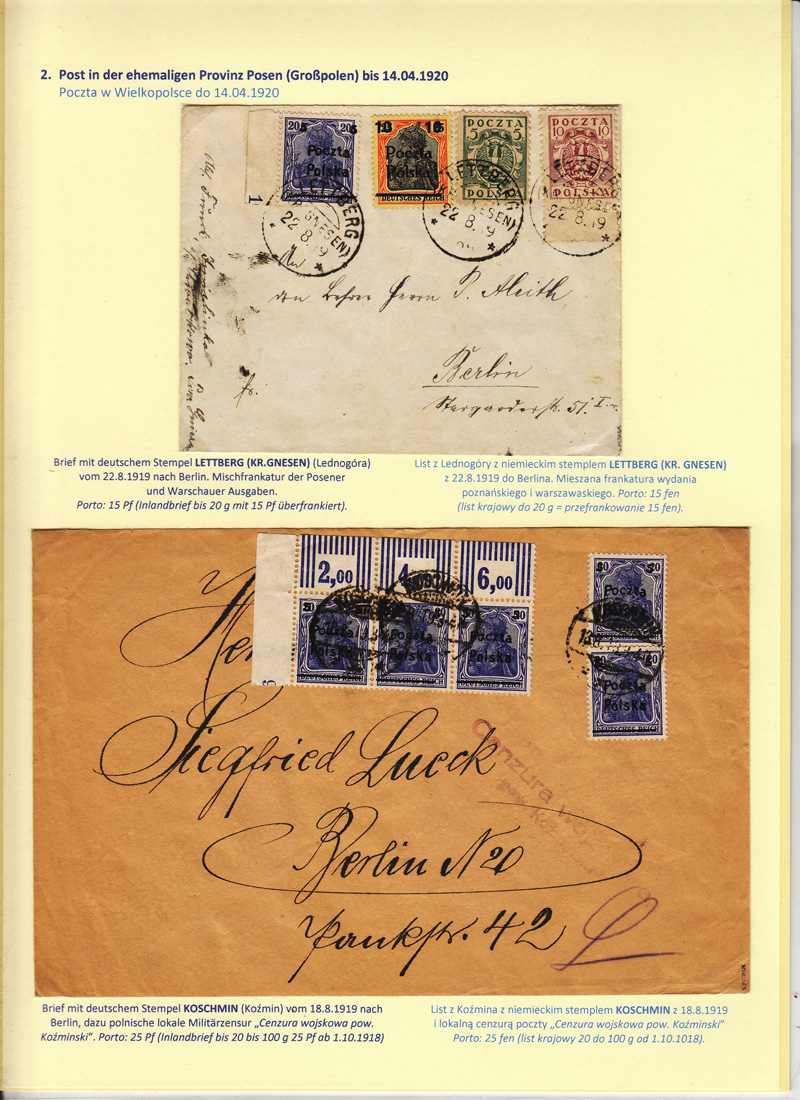 2. Post in der ehemaligen Provinz Posen (Großpolen) bis 14.04.1920
Poczta w Wielkopolsce do 14.04.1920
20 5 5 20
Poczta
Polska
10 10
Poczta
Polska
DEUTSCHES REICH
POCZTA
5 5
POLSKA
POCZTA
10 10
POLSKA
1
LETTBERG
(KR. GNESEN)
22 8.19
LETTBERG
GNESEN)
22 8.19
LETTBERG
GNESEN)
22 8.19
Herrn P. Aleith
Berlin
Stargarderstr. 51 I
Brief mit deutschem Stempel LETTBERG (KR.GNESEN) (Lednogóra)
vom 22.8.1919 nach Berlin. Mischfrankatur der Posener
und Warschauer Ausgaben.
Porto: 15 Pf (Inlandbrief bis 20 g mit 15 Pf überfrankiert).
List z Lednogóry z niemieckim stemplem LETTBERG (KR. GNESEN)
z 22.8.1919 do Berlina. Mieszana frankatura wydania
poznańskiego i warszawaskiego. Porto: 15 fen
(list krajowy do 20 g = przefrankowanie 15 fen).
2,00 4 6,00
Poczta
Polska
Poczta
Polska
Poczta
Polska
DEUTSCHES REICH
Poczta
Poczta
Polska
Siegfried Lueck
Cenzura
Berlin N20
Pankstr. 42
Brief mit deutschem Stempel KOSCHMIN (Koźmin) vom 18.8.1919 nach
Berlin, dazu polnische lokale Militärzensur „Cenzura wojskowa pow.
Koźminski“. Porto: 25 Pf (Inlandbrief bis 20 bis 100 g 25 Pf ab 1.10.1918)
List z Koźmina z niemieckim stemplem KOSCHMIN z 18.8.1919
i lokalną cenzurą poczty „Cenzura wojskowa pow. Koźminski”
Porto: 25 fen (list krajowy 20 do 100 g od 1.10.1018).